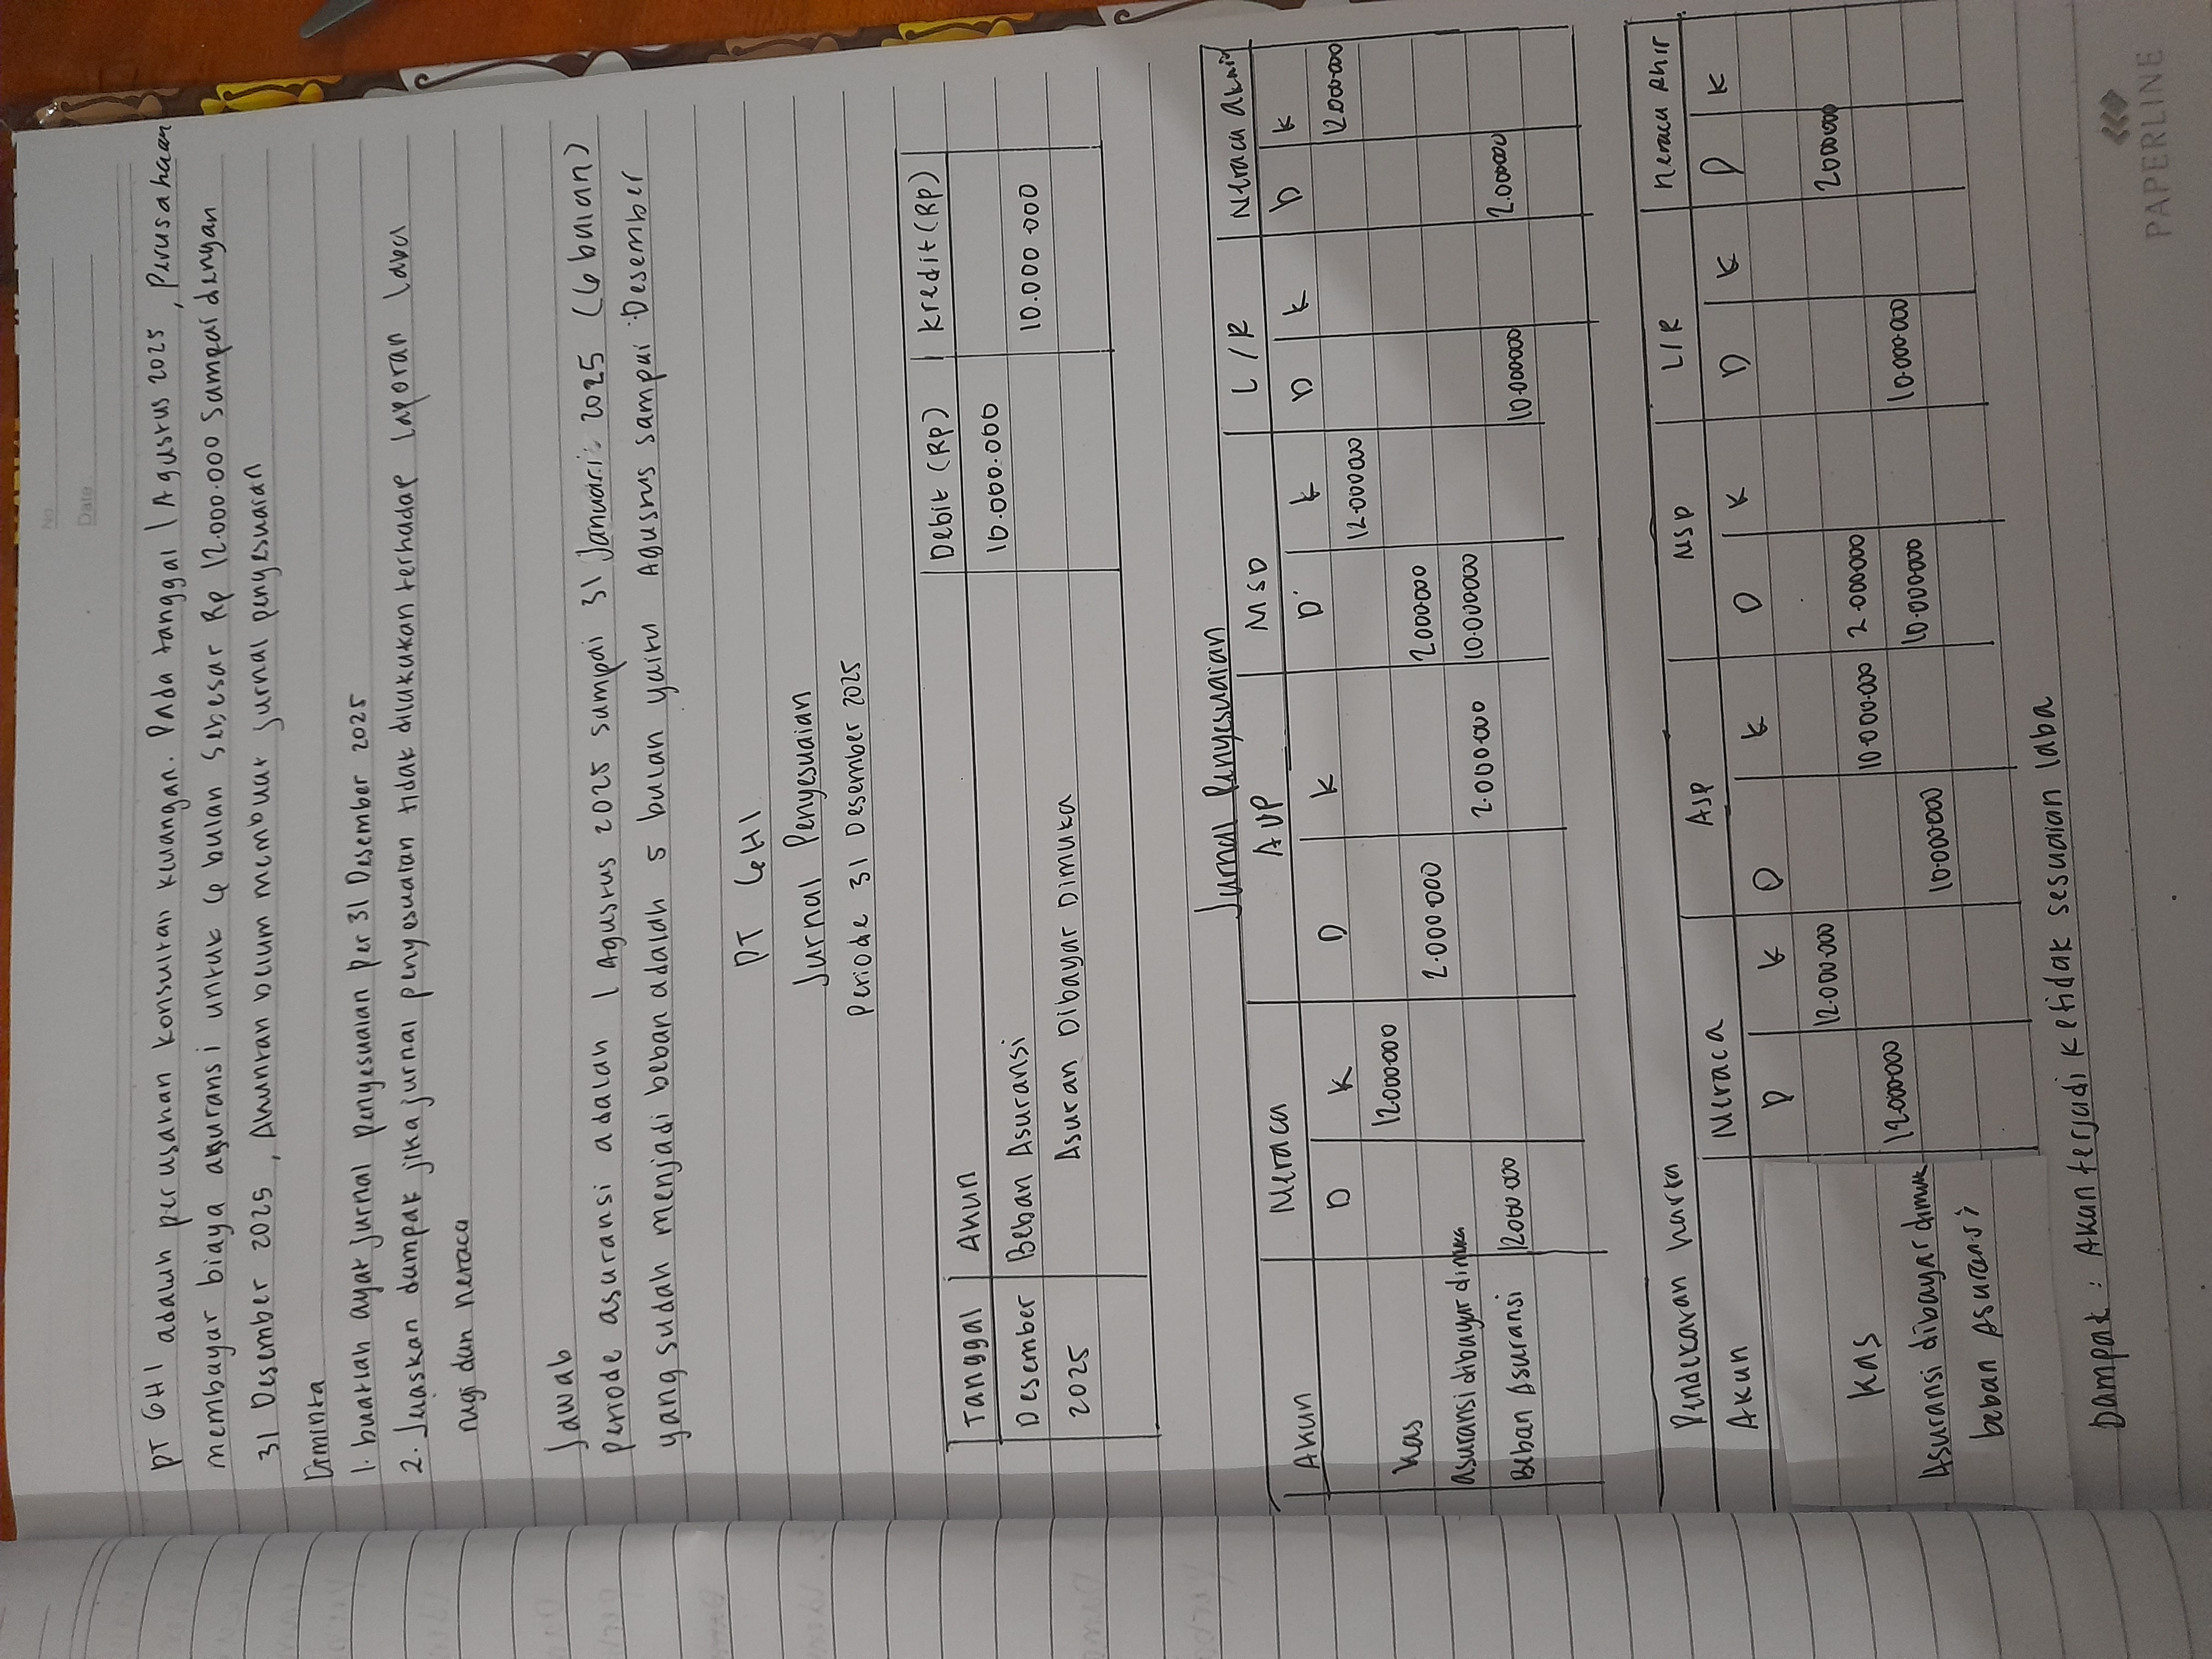 No
Date
PT GHI adalah perusahan konsultan keuangan. Pada tanggal 1 Agustus 2025, Perusahaan
membayar biaya asuransi untuk 6 bulan sebesar Rp 12.000.000 sampai dengan
31 Desember 2025, Akuntan belum membuat jurnal penyesuaian
Diminta
1. buatlah ayat jurnal penyesuaian per 31 Desember 2025
2. Jelaskan dampak jika jurnal penyesuaian tidak dilakukan terhadap laporan laba
rugi dan neraca
Jawab
Periode asuransi adalah 1 Agustus 2025 sampai 31 Januari 2025 (6 bulan)
yang sudah menjadi beban adalah 5 bulan yaitu Agustus sampai Desember
PT GHI
Jurnal Penyesuaian
Periode 31 Desember 2025
Tanggal Akun Debit (Rp) kredit (Rp)
Desember Beban Asuransi 10.000.000
2025 Asuran Dibayar Dimuka 10.000.000
Jurnal Penyesuaian
Akun Neraca AJP NSD L/R Neraca Akhir
D K D K D K D K D K
kas 12.000.000 12.000.000 12.000.000
asuransi dibayar dimuka 2.000.000 2.000.000
Beban Asuransi 12.000.000 2.000.000 10.000.000 10.000.000 2.000.000
Pendekatan harta
Akun Neraca AJP NSD L/R neraca Ahir
D K D K D K D K D K
kas 12.000.000 2.000.000
Asuransi dibayar dimuka 12.000.000 10.000.000 2.000.000
beban Asuransi 10.000.000 10.000.000 10.000.000
Dampak : Akan terjadi ketidak sesuaian laba
PAPERLINE